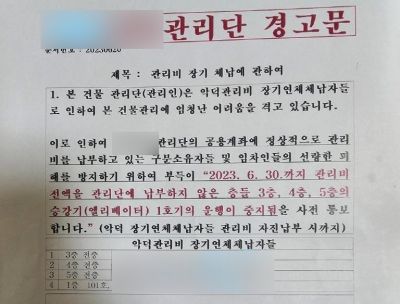 관리단 경고문
문서번호 : 20230620
제목 : 관리비 장기 체납에 관하여
1. 본 건물 관리단(관리인)은 악덕관리비 장기연체체납자들
로 인하여 본 건물관리에 엄청난 어려움을 격고 있습니다.
이로 인하여 관리단의 공용계좌에 정상적으로 관리
비를 납부하고 있는 구분소유자들 및 임차인들의 선량한 피
해를 방지하기 위하여 부득이 “2023. 6. 30.까지 관리비
전액을 관리단에 납부하지 않은 층들 3층, 4층, 5층의
승강기(엘리베이터) 1호기의 운행이 중지됨을 사전 통보
합니다.” (악덕 장기연체체납자들 관리비 자진납부 시까지)
악덕관리비 장기연체체납자들
1 3층 전층
2 4층 전층
3 5층 전층
4 1층 101호.